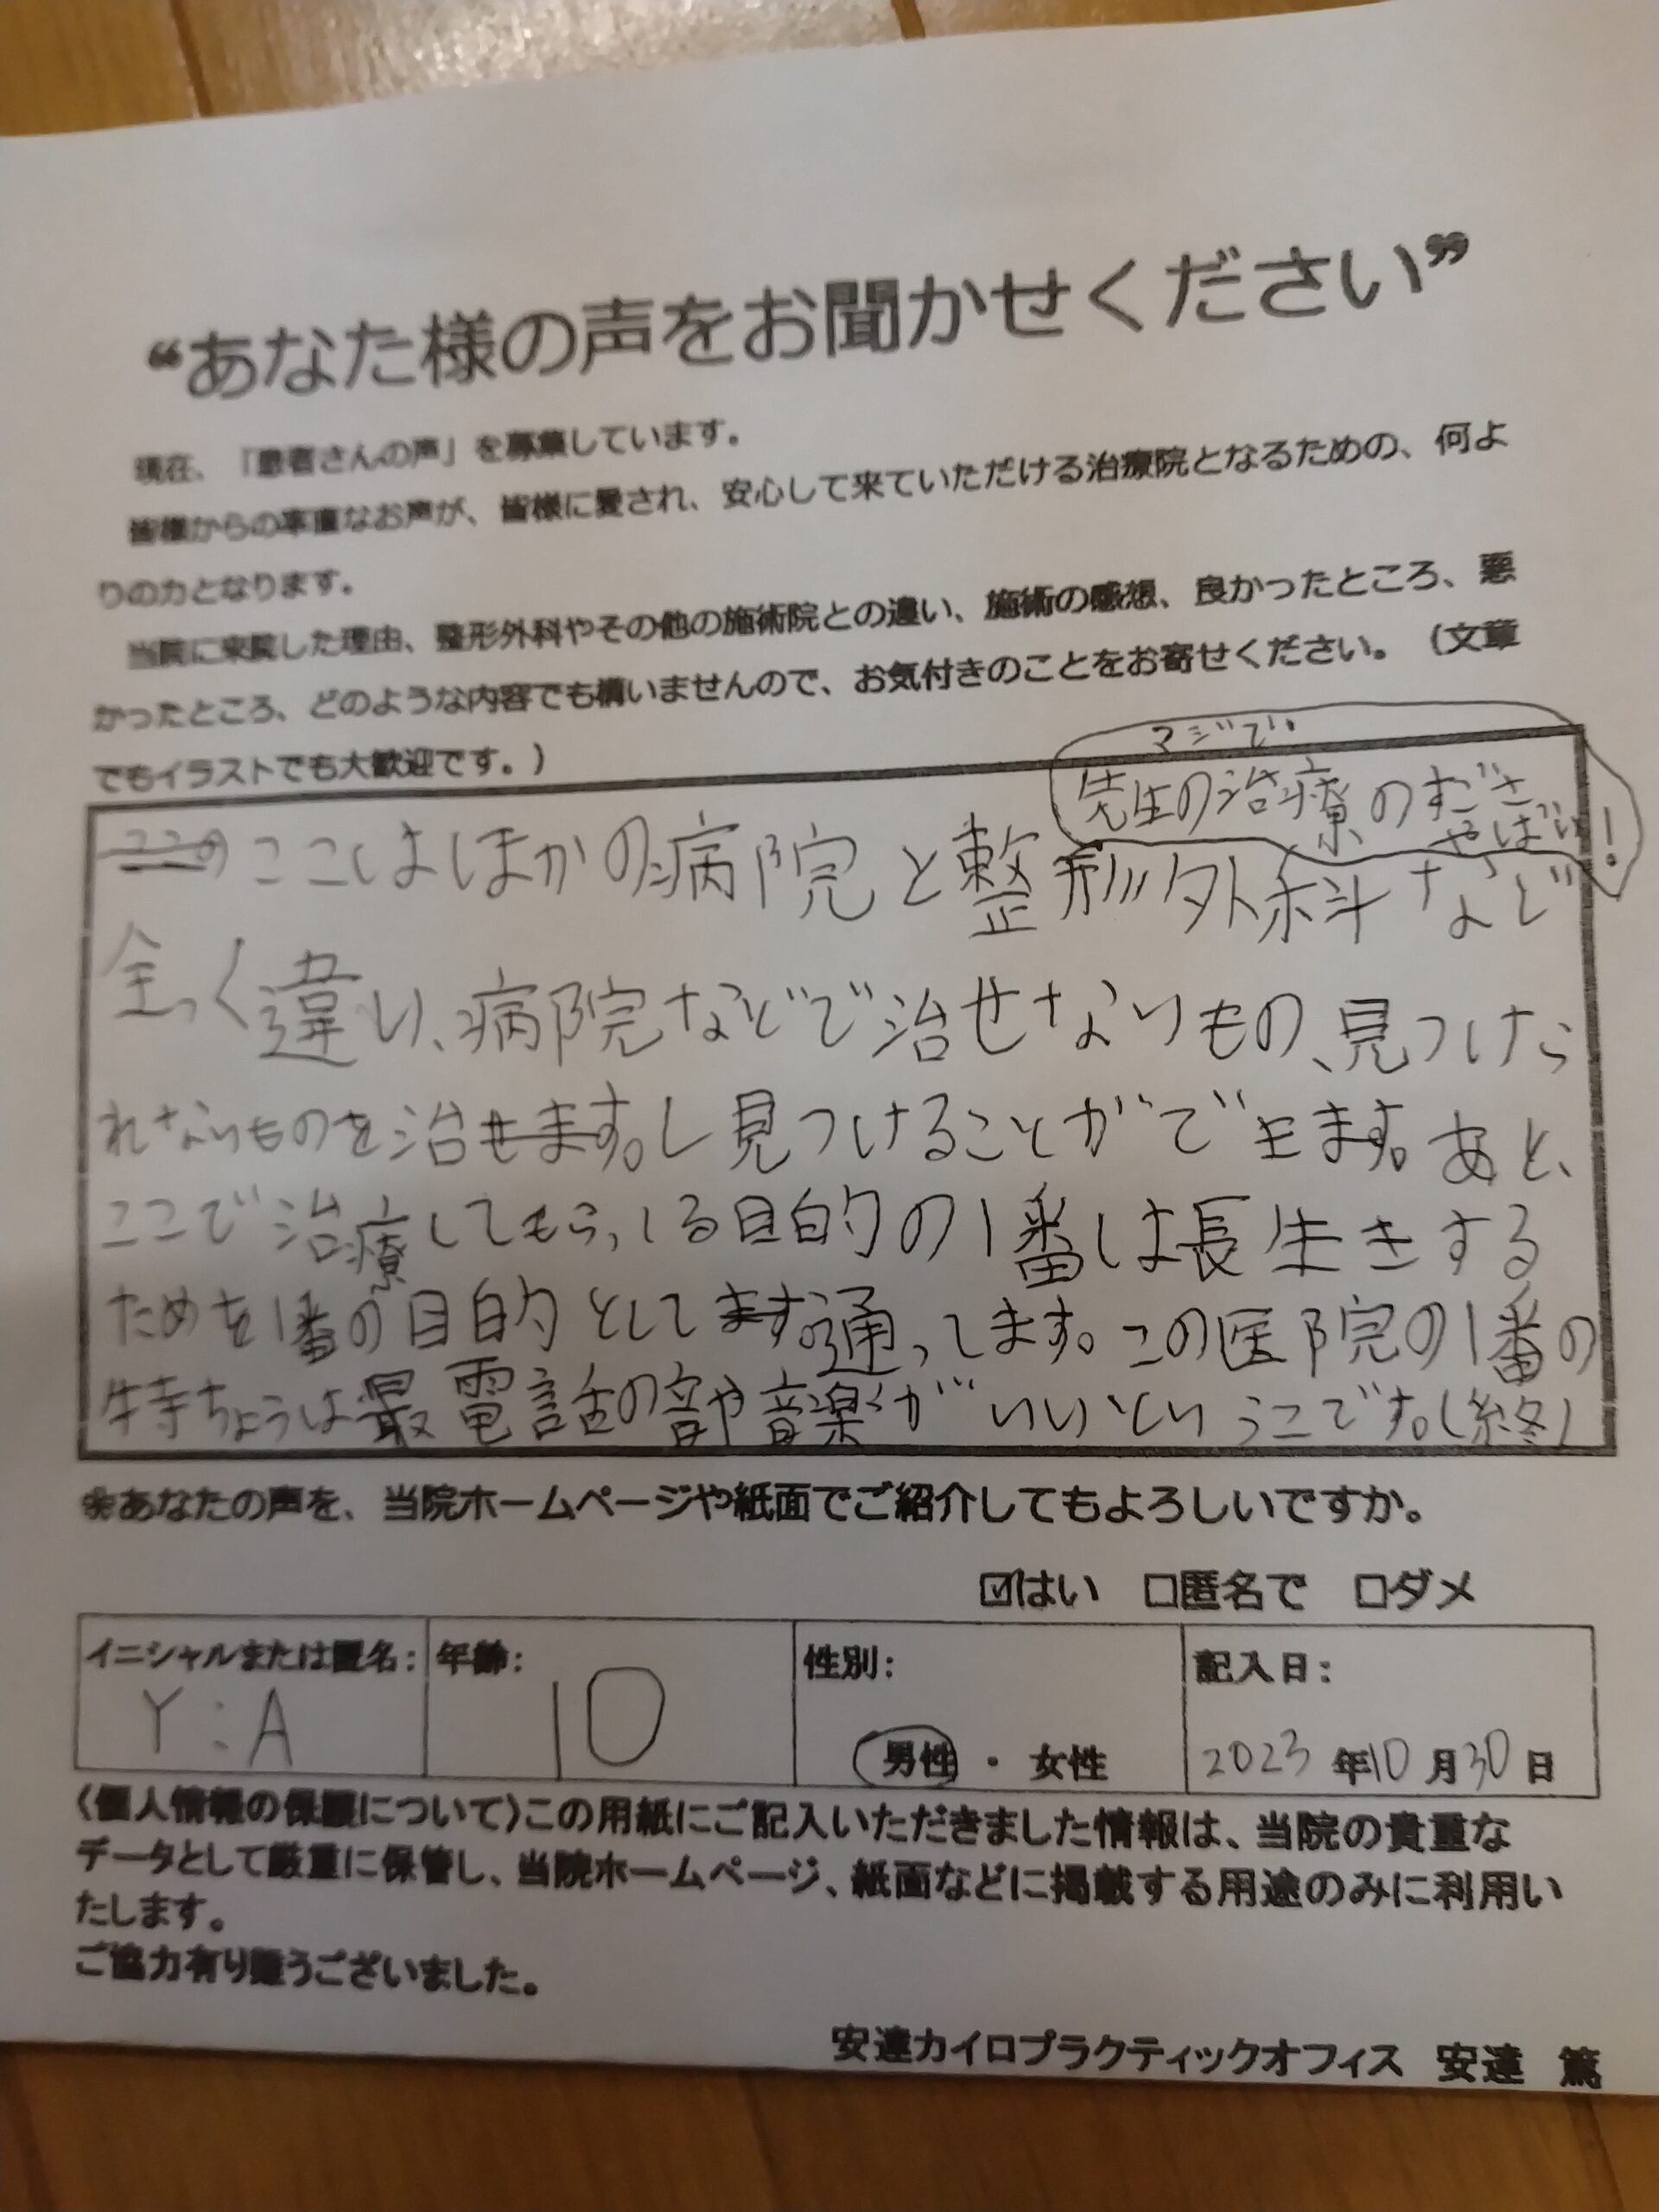 “あなた様の声をお聞かせください”
現在、「患者さんの声」を募集しています。
皆様からの率直なお声が、皆様に愛され、安心して来ていただける治療院となるための、何よ
りの力となります。
当院に来院した理由、整形外科やその他の施術院との違い、施術の感想、良かったところ、悪
かったところ、どのような内容でも構いませんので、お気付きのことをお寄せください。（文章
でもイラストでも大歓迎です。）
マジで。
先生の治療のすごさ
やばい！
ここはほかの病院と整形外科など
全っく違い、病院などで治せないもの、見つけら
れないものを治せます。し見つけることができます。あと、
ここで治療してもらっいる目的の1番は長生きする
ためを1番の目的としてます。通っします。この医院の1番の
特ちょうは最電話の音や音楽がいいというこです。(終)
※あなたの声を、当院ホームページや紙面でご紹介してもよろしいですか。
☑はい □匿名で □ダメ
イニシャルまたは匿名: 年齢: 性別: 記入日:
Y:A 10 男性・女性 2023年10月30日
〈個人情報の保護について〉この用紙にご記入いただきました情報は、当院の貴重な
データとして厳重に保管し、当院ホームページ、紙面などに掲載する用途のみに利用い
たします。
ご協力有り難うございました。
安達カイロプラクティックオフィス 安達 篤